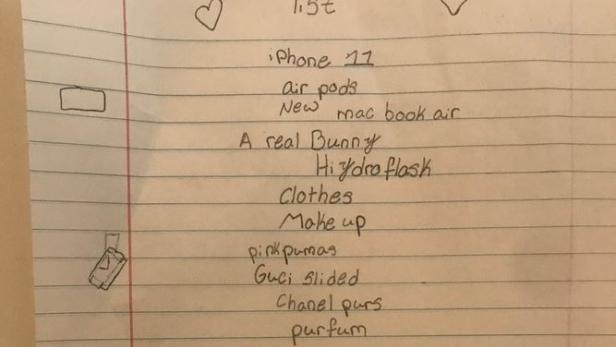 list
iPhone 11
air pods
New mac book air
A real Bunny
Hiydroflask
Clothes
Make up
pink pumas
Guci slided
Chanel purs
purfum